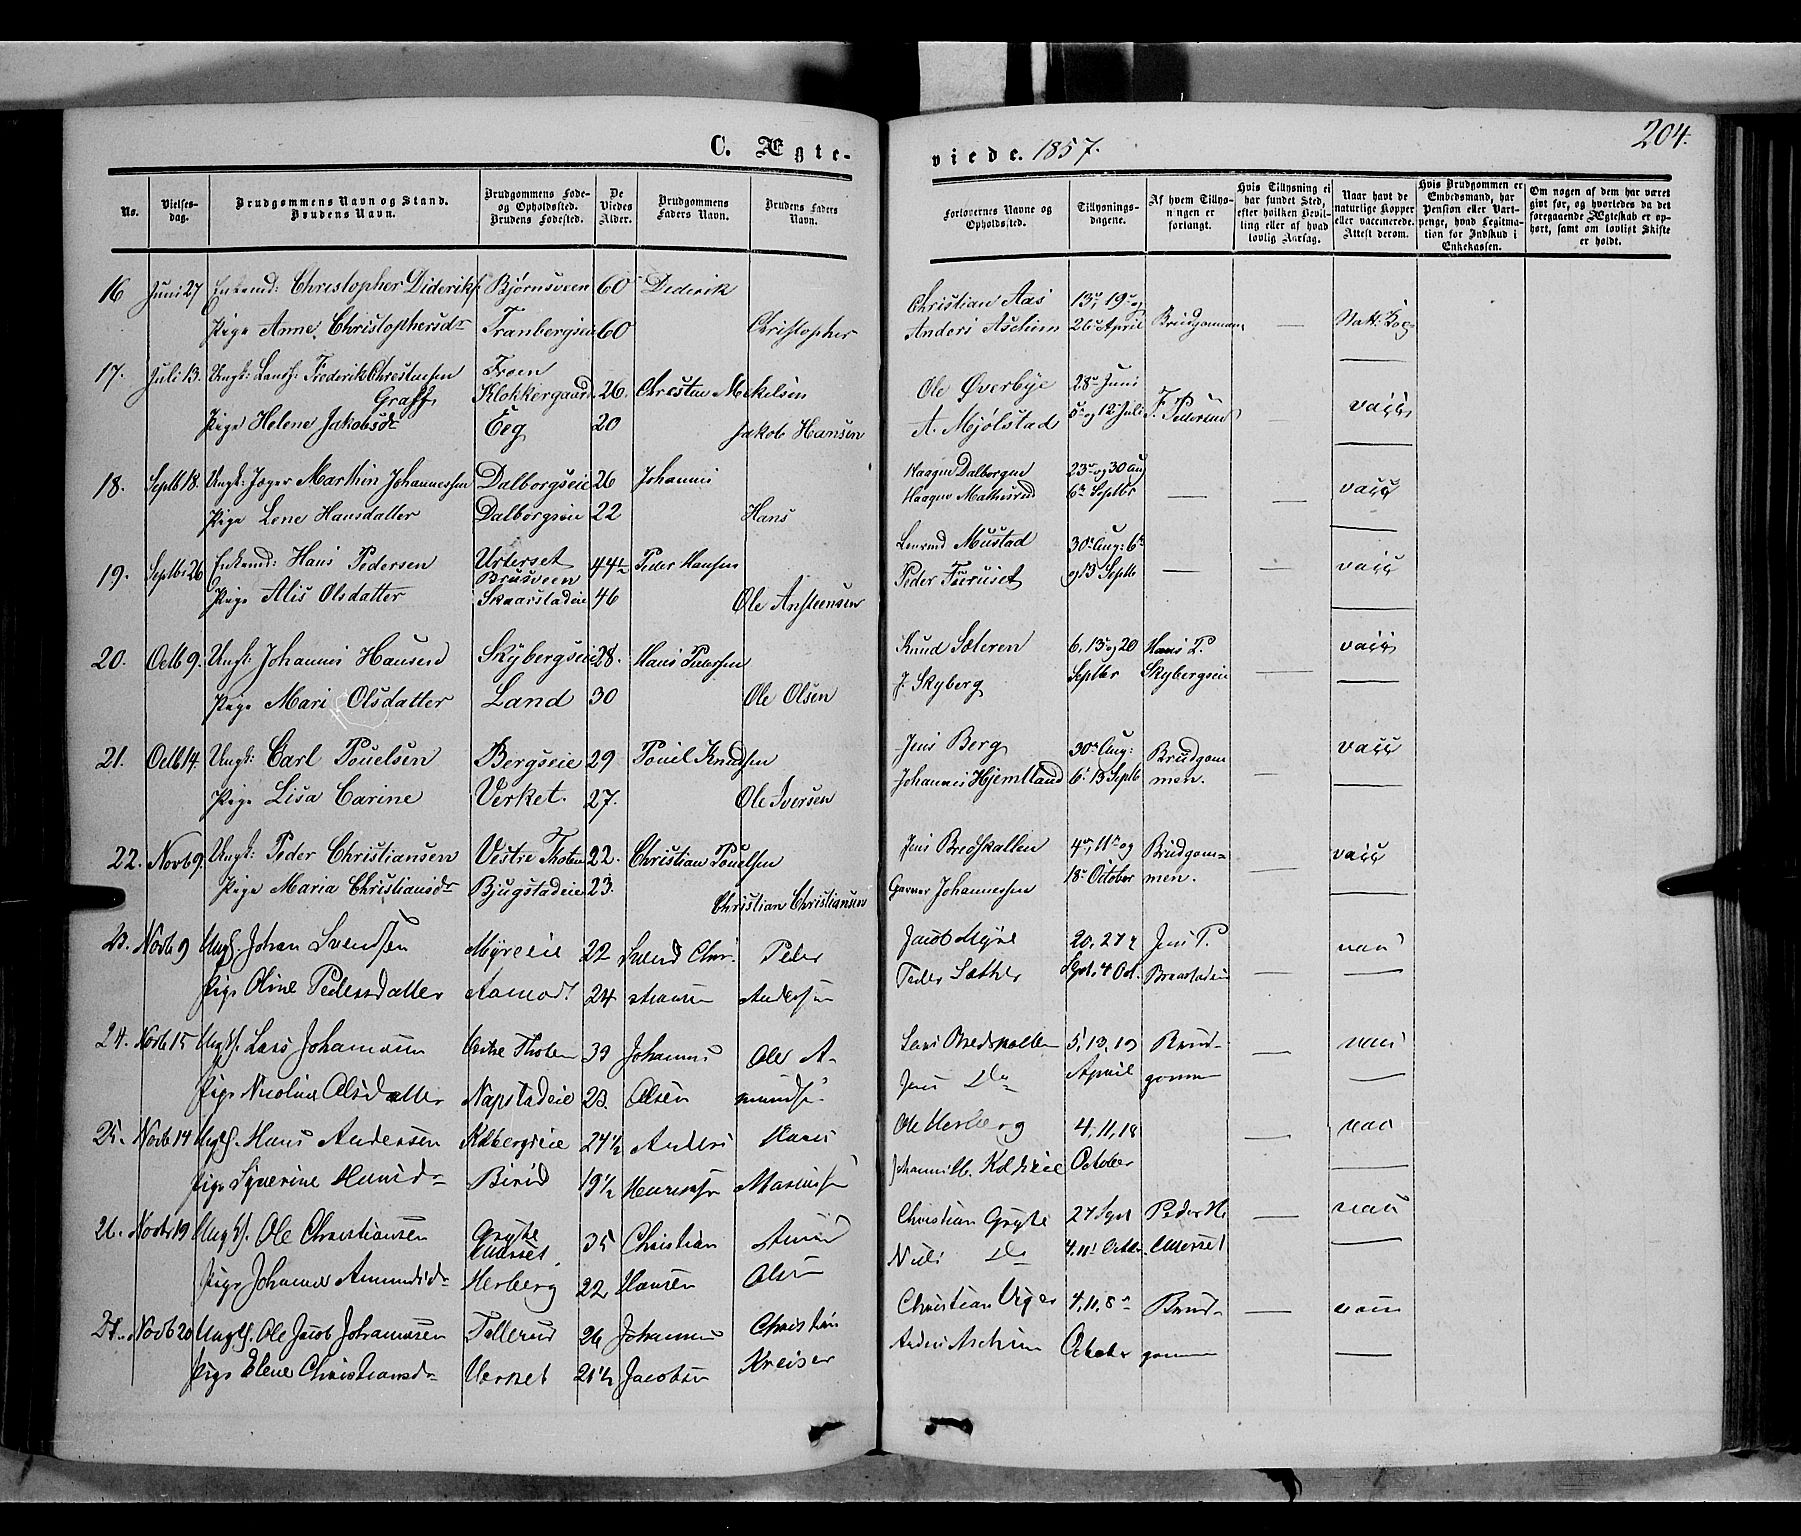 204.
C. Ægte-
viede. 1857.
No.
Vielses-
dag.
Brudgommens Navn og Stand.
Brudens Navn.
Brudgommens Føde-
og Opholdssted.
Brudens Fødested.
De
Viedes
Alder.
Brudgommens
Faders Navn.
Brudens Faders
Navn.
Forlovernes Navne og
Opholdssted.
Tillysnings-
dagene.
Af hvem Tillys-
ningen er
forlangt.
Hvis Tillysning ei
har fundet Sted,
efter hvilken Bevil-
ling eller af hvad
lovlig Aarsag.
Naar havt de
naturlige Kopper
eller vaccinerede.
Attest derom.
Hvis Brudgommen er
Embedsmand, har
Pension eller Vart-
penge, hvad Legitima-
tion for Indskud i
Enkekassen.
Om nogen af dem har været
givt før, og hvorledes da det
foregaaende Ægteskab er op-
hørt, samt om lovligt Skifte
er holdt.
16 Juni 27 Enkemd: Christopher Dideriks. Bjørnsveen 60 Diderik Christian Aas 13de, 19de og
Pige Anne Christophersdr Tranbergseie 60 Christopher Anders Aschim 26de April Brudgommen — Natt: Kop
17. Juli 13. Ungk: Frederik Christiansen Graff Froen Klokkergaard 26. Christian Mikelsen Ole Øverbye 28de Juni
Pige Helene Jakobsdr Eeg 20 Jakob Hansen A. Mjølstad 5te og 12te Juli F. Pedersen — vacc
18. Septb 18. Ungk: Jæger Marthin Johannessen Dalborgseie 26 Johannes Haagen Dalborgen 23de og 30 Aug
Pige Lene Hansdatter Dalborgseie 22 Hans Haagen Mathisrud 6te Septbr — — vacc
19. Septb 26 Enkemd: Hans Pedersen Urterset Brusveen 44½ Peder Hansen Mustad 30te Aug: 6te
Pige Alis Olsdatter Skaarstadeie 46 Ole Ansteensen Peder og 13 Septb — — vacc
20. Octb 9. Ungk: Johannes Hansen Skybergseie 28. Hans Pedersen Knud Sæteren 6, 13de og 20 Hans P.
Pige Mari Olsdatter Land 30 Ole Olsen J. Skyberg Septbr Skybergseie — vacc
21. Octb 14 Ungk: Carl Pouelsen Bergseie 29 Pouel Knudsen Jens Berg 30te Aug: Brudgom
Pige Lisa Carine Verket. 27. Ole Iversen Johannes Hjemtland 6te 13 Septb men. — vacc
22. Novb 9. Ungk: Peder Christiansen Vestre Thoten 22. Christian Pouelsen Jens Bredskallen 4de, 11te og Brudgom-
Pige Maria Christiansdr Bjugstadeie 23. Christian Christiansen Gunner Johannessen 18de October men. — vacc
23. Novb 9 Ungk. Johan Svendsen Myreeie 22 Svend Chri- Peder Jacob Myre 20, 27 Jens P.
Pige Oline Pedersdatter Aamodt 24 stiansen Andersen Peder Sæther Spt. 4 Oct. — vacc
24. Novb 15 Ungk. Lars Johannesen Vestre Thoten 33 Johannes Ole A- Lars Bredskallen 5, 13, 19 Brud-
Pige Nicoline Olsdatter Napstadeie 23. Olsen mundsen Jens Do April gommen — vacc
25. Novb 14 Ungk. Hans Andersen Kolbergseie 24½ Anders Hans Ole Herberg 4, 11, 18
Pige Syverine Hansdr Birid 19½ Johannes October — vacc
26. Novbr 19 Ungk. Ole Christiansen Gryte 35 Christian Christian Gryte 27 Sept Peder H.
Pige Johanne Amundsdr Herberg 22 Hansen Olsen Niels Do 4, 11 Octbr. — vacc
27. Novb 20 Ungk. Ole Jacob Johannesen Tollerud 26 Johannes Christian Christian 4, 11, 8 Brud-
Pige Elene Christiansdr Verket 21½ Jacobsen Kreiser Anders Aschim October gommen — vacc